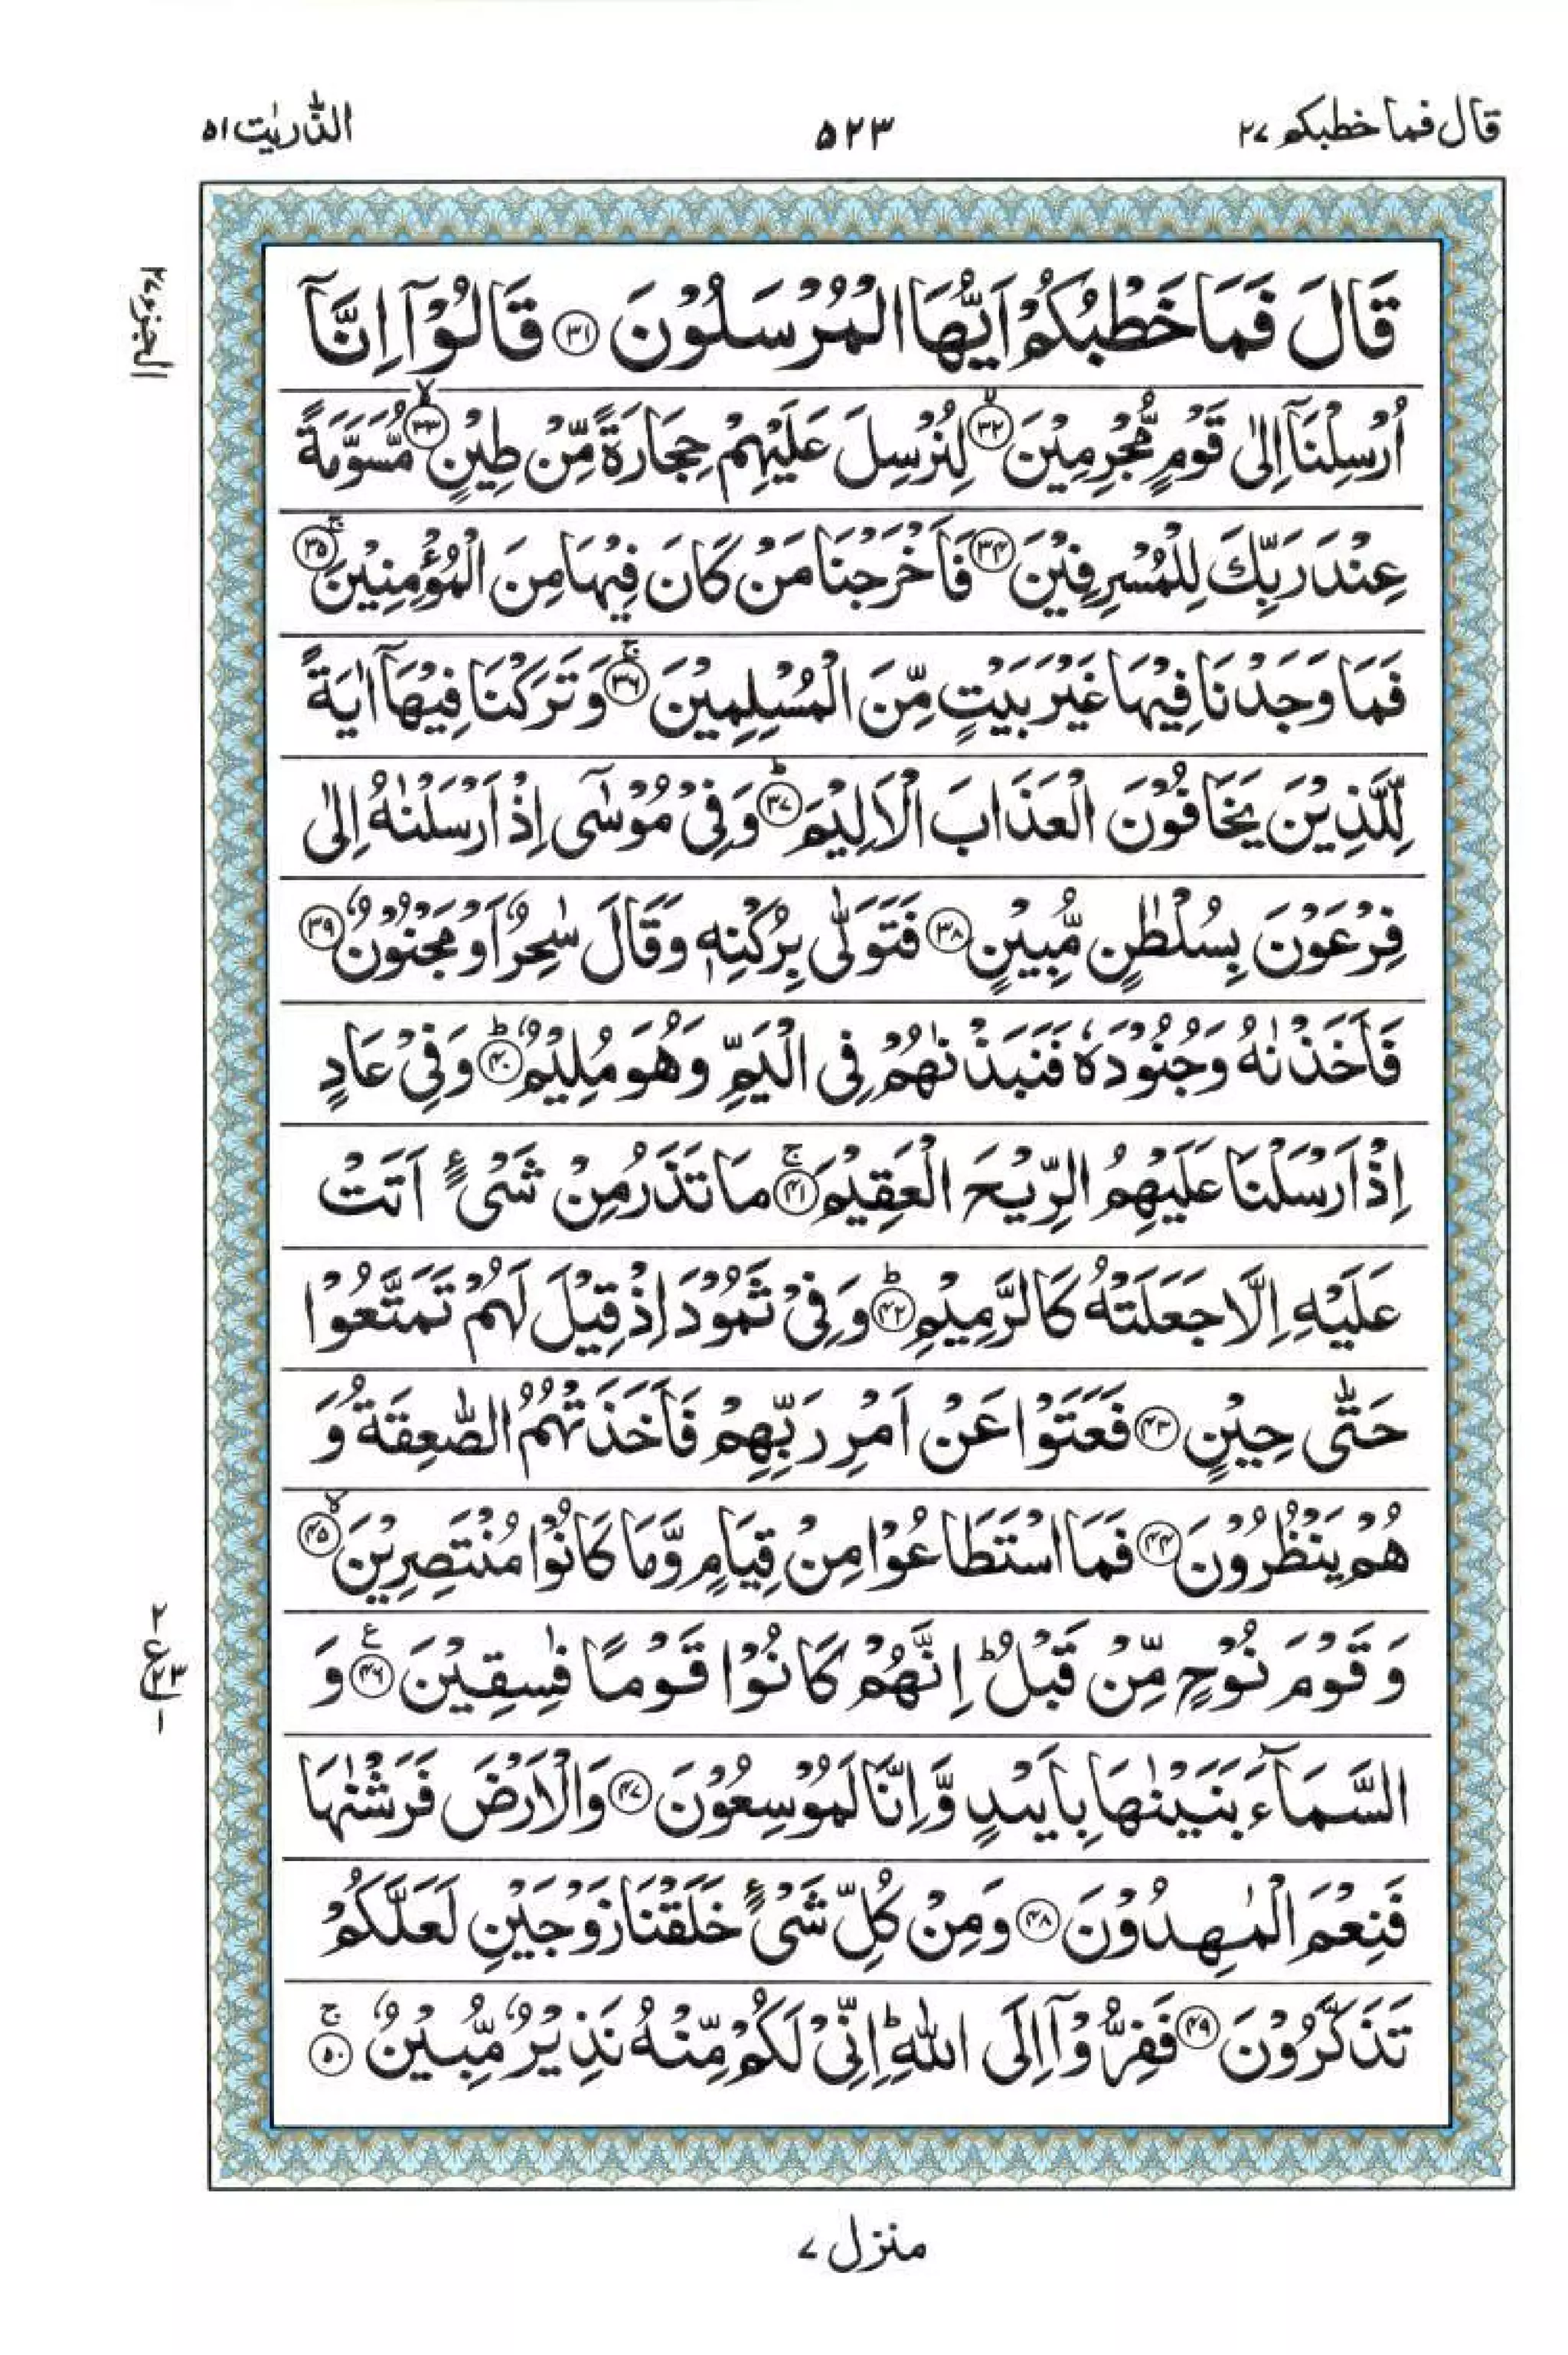 قال فما خطبكم ۲۷
۵۲۳
الذّٰريٰت ۵۱
الجزء ۲۷
قَالَ فَمَا خَطْبُكُمْ اَيُّهَا الْمُرْسَلُوْنَ ۳۱ قَالُوْۤا اِنَّاۤ
اُرْسِلْنَاۤ اِلٰى قَوْمٍ مُّجْرِمِيْنَ ۙ۳۲ لِنُرْسِلَ عَلَيْهِمْ حِجَارَةً مِّنْ طِيْنٍ ۙ۳۳ مُّسَوَّمَةً
عِنْدَ رَبِّكَ لِلْمُسْرِفِيْنَ ۳۴ فَاَخْرَجْنَا مَنْ كَانَ فِيْهَا مِنَ الْمُؤْمِنِيْنَ ۚ۳۵
فَمَا وَجَدْنَا فِيْهَا غَيْرَ بَيْتٍ مِّنَ الْمُسْلِمِيْنَ ۚ۳۶ وَ تَرَكْنَا فِيْهَاۤ اٰيَةً
لِّلَّذِيْنَ يَخَافُوْنَ الْعَذَابَ الْاَلِيْمَ ؕ۳۷ وَ فِيْ مُوْسٰۤى اِذْ اَرْسَلْنٰهُ اِلٰى
فِرْعَوْنَ بِسُلْطٰنٍ مُّبِيْنٍ ۳۸ فَتَوَلّٰى بِرُكْنِهٖ وَ قَالَ سٰحِرٌ اَوْ مَجْنُوْنٌ ۳۹
فَاَخَذْنٰهُ وَ جُنُوْدَهٗ فَنَبَذْنٰهُمْ فِى الْيَمِّ وَ هُوَ مُلِيْمٌ ؕ۴۰ وَ فِيْ عَادٍ
اِذْ اَرْسَلْنَا عَلَيْهِمُ الرِّيْحَ الْعَقِيْمَ ۚ۴۱ مَا تَذَرُ مِنْ شَيْءٍ اَتَتْ
عَلَيْهِ اِلَّا جَعَلَتْهُ كَالرَّمِيْمِ ؕ۴۲ وَ فِيْ ثَمُوْدَ اِذْ قِيْلَ لَهُمْ تَمَتَّعُوْا
حَتّٰى حِيْنٍ ۴۳ فَعَتَوْا عَنْ اَمْرِ رَبِّهِمْ فَاَخَذَتْهُمُ الصّٰعِقَةُ وَ
هُمْ يَنْظُرُوْنَ ۴۴ فَمَا اسْتَطَاعُوْا مِنْ قِيَامٍ وَّ مَا كَانُوْا مُنْتَصِرِيْنَ ۙ۴۵
وَ قَوْمَ نُوْحٍ مِّنْ قَبْلُ ؕ اِنَّهُمْ كَانُوْا قَوْمًا فٰسِقِيْنَ ۴۶ ع وَ
۲ ع ۲۳ ۱
السَّمَآءَ بَنَيْنٰهَا بِاَيْىدٍ وَّ اِنَّا لَمُوْسِعُوْنَ ۴۷ وَ الْاَرْضَ فَرَشْنٰهَا
فَنِعْمَ الْمٰهِدُوْنَ ۴۸ وَ مِنْ كُلِّ شَيْءٍ خَلَقْنَا زَوْجَيْنِ لَعَلَّكُمْ
تَذَكَّرُوْنَ ۴۹ فَفِرُّوْۤا اِلَى اللّٰهِ ؕ اِنِّيْ لَكُمْ مِّنْهُ نَذِيْرٌ مُّبِيْنٌ ۚ۵۰
منزل ۷